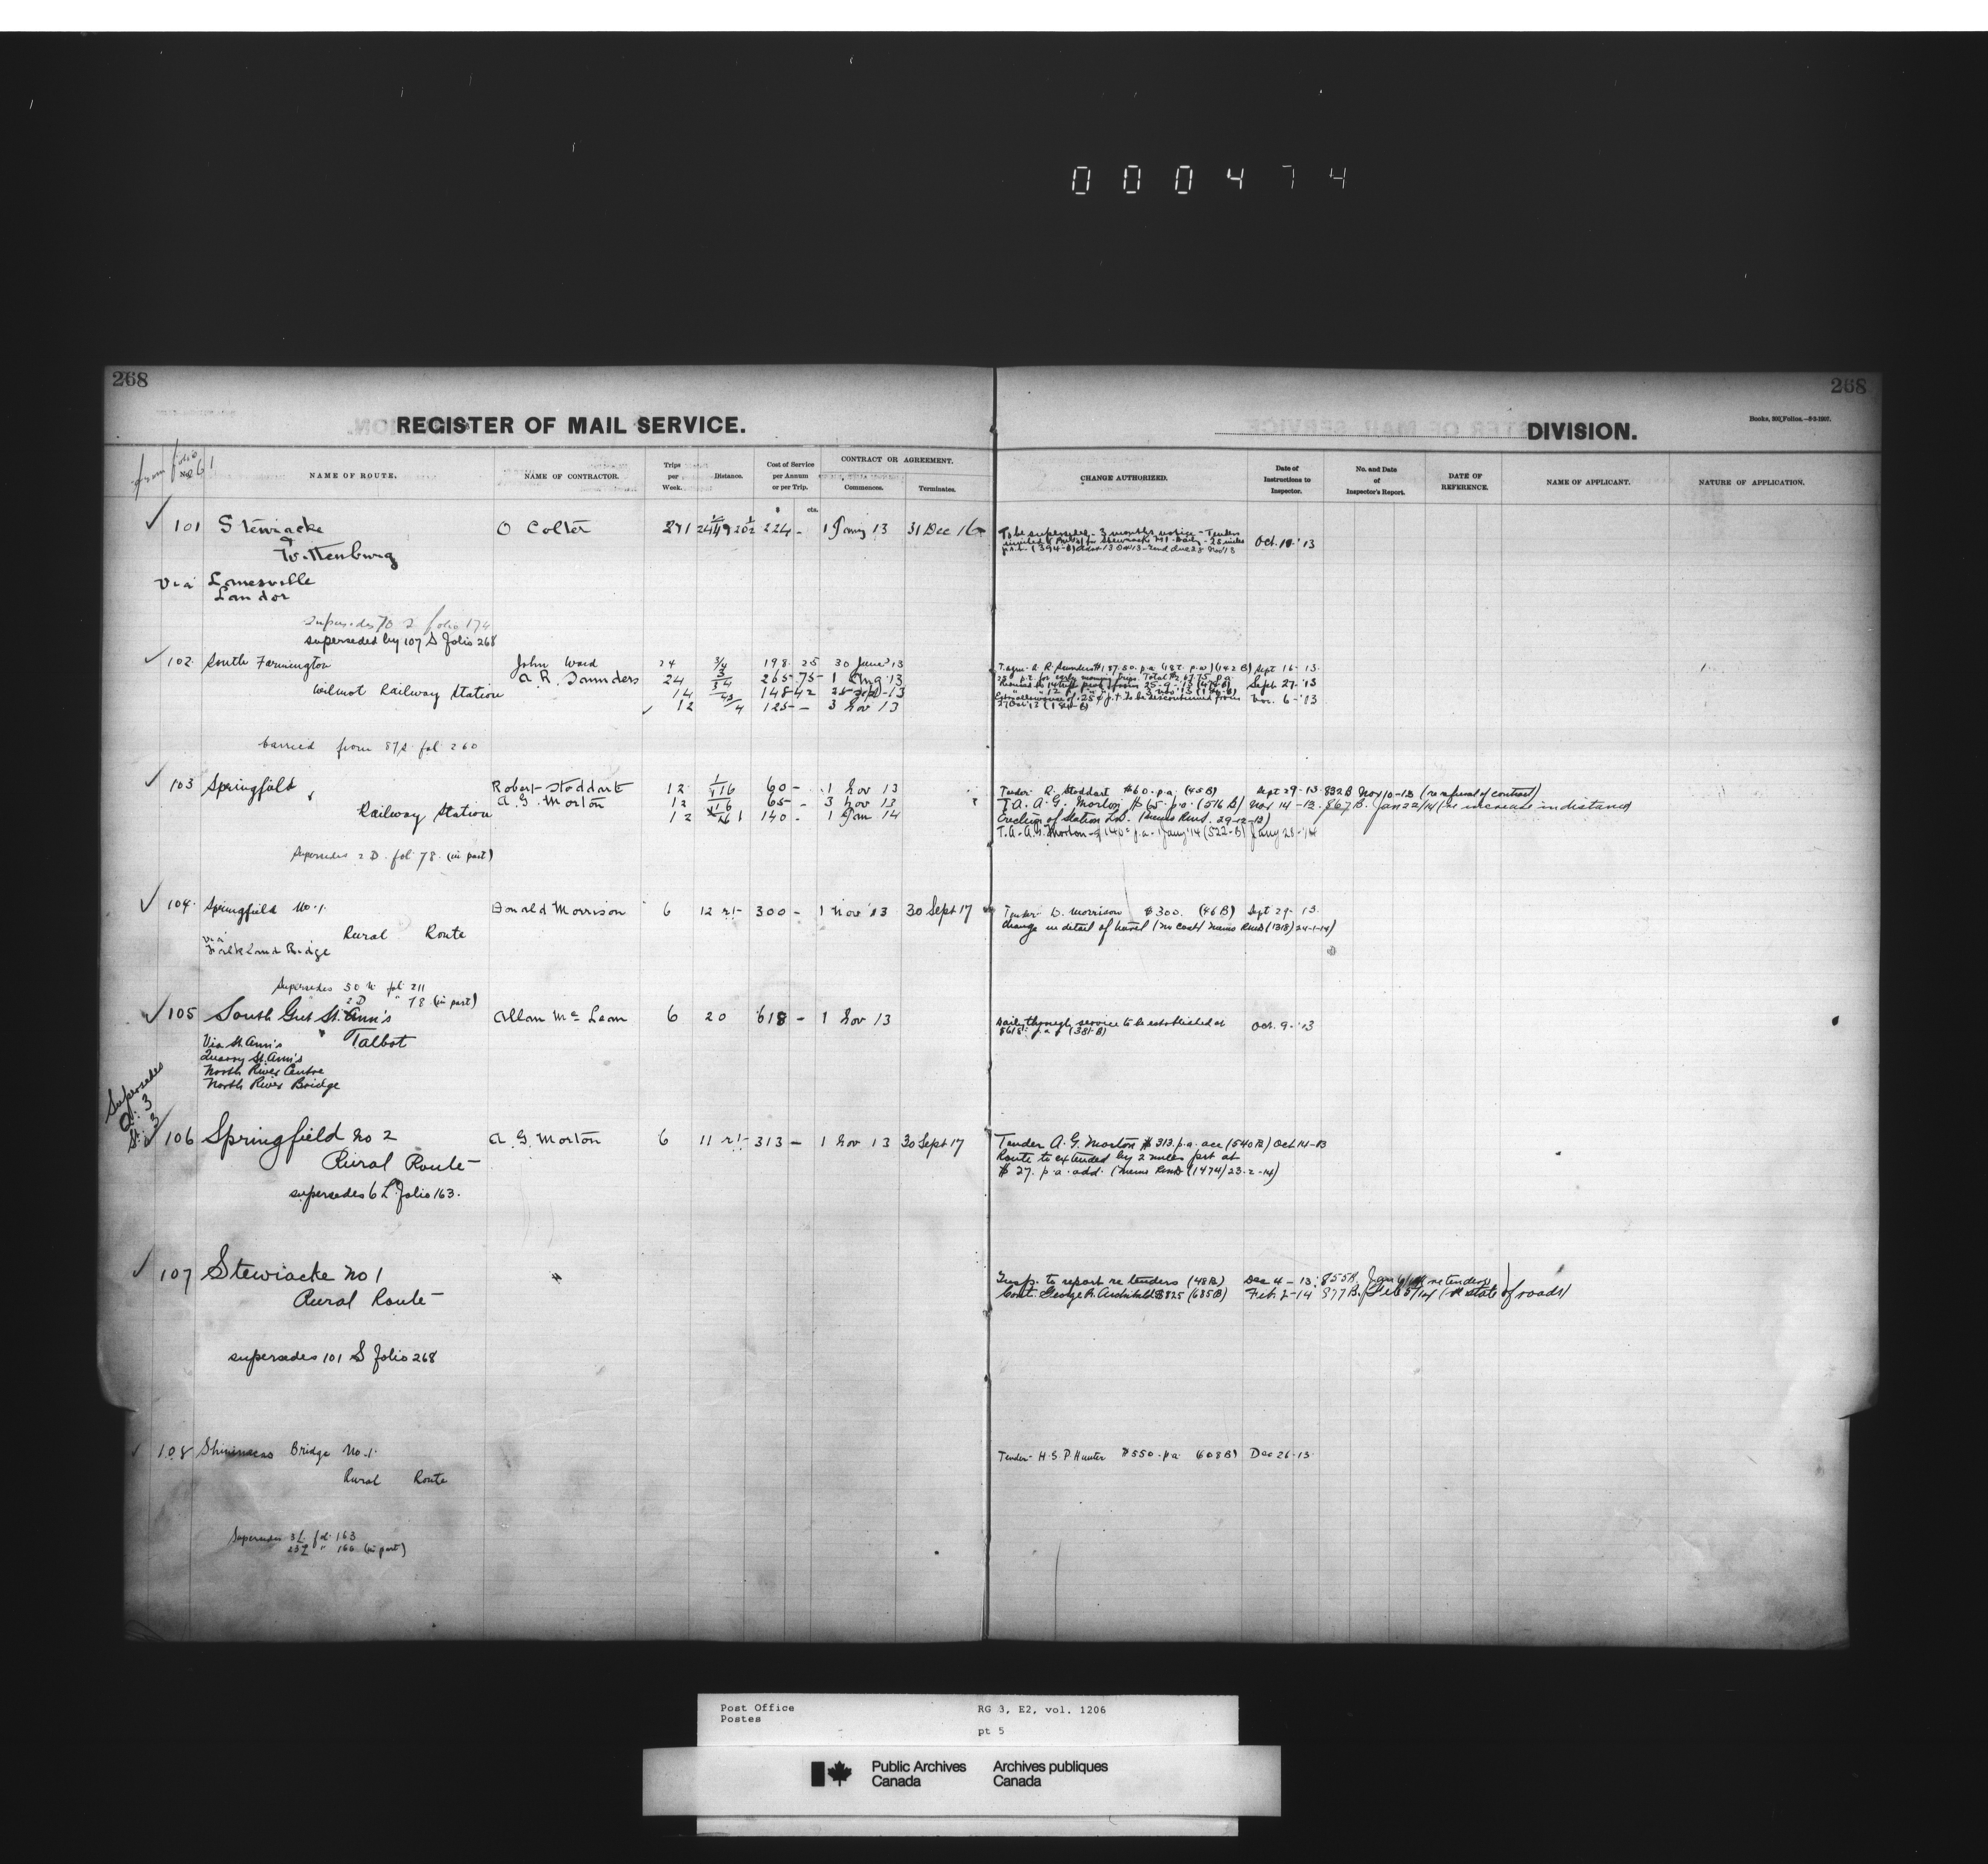 000474
268
268
REGISTER OF MAIL SERVICE.
DIVISION.
Books, 500 Folios.—8-2-1907.
from folio 261
No.
NAME OF ROUTE.
NAME OF CONTRACTOR.
Trips per Week.
Distance.
Cost of Service per Annum or per Trip.
CONTRACT OR AGREEMENT.
Commences.
Terminates.
CHANGE AUTHORIZED.
Date of Instructions to Inspector.
No. and Date of Inspector's Report.
DATE OF REFERENCE.
NAME OF APPLICANT.
NATURE OF APPLICATION.
$ cts.
101 Stewiacke O Colter 224 - 1 Jany 13 31 Dec 16
To be superseded - 3 months notice - Tenders Oct. 10-'13
& Wittenburg
Via Lanesville
Landor
Supersedes 70 S folio 174
superseded by 107 S Folio 268
102 South Farmington John Ward 24 3/4 198 25 30 June '13
Wilmot Railway Station A R. Saunders 24 265-75- 1 Aug '13
14 148-42 25 Sep-13
12 125- - 3 Nov 13
T. agmt. A. R. Saunders $187.50. p.a. (142 B) Sept 16-13.
Sept. 27-'13
Nov. 6-'13
Carried from 87 S. fol 260
103 Springfield Robert Stoddart 12 60- - 1 Nov 13
A. G. Morton 12 65- - 3 Nov 13
& Railway Station 12 140 - 1 Jan 14
Tender R. Stoddart $60. p.a. (45 B) Sept 29-13 832 B Nov 10-13 (re refusal of contract)
T. A. A. G. Morton $65. p.a. (516 B) Nov 14-13. 867 B. Jan 22/14 (re increase in distance)
Erection of Station Ld. (Memo Rmd. 29-12-13)
T. A. A. G. Morton $140 p.a. 1 Jany '14 (522-B) Jany 28-'14
Supersedes 2 D. fol 78. (in part)
104 Springfield No. 1. Donald Morrison 6 12 r.t- 300 - 1 Nov '13 30 Sept 17
Tender D. Morrison $300. (46 B) Sept 29-13.
Change in detail of travel (no cost) Memo Rmd (1318) 24-1-14)
Rural Route
via Falkland Bridge
Supersedes 50 N fol 211
2 D " 78 (in part)
105 South Gut St. Ann's Allan McLean 6 20 618 - 1 Nov 13
Daily through service to be established at Oct. 9-'13
$618. p.a. (381-B)
& Talbot
Via St. Ann's
Quarry St. Ann's
North River Centre
North River Bridge
Supersedes
106 Springfield No 2 A. G. Morton 6 11 r.t- 313 - 1 Nov 13 30 Sept 17
Tender A. G. Morton $313. p.a. acc (540 B) Oct 14-13
Rural Route
Route to extended by 2 miles fort at
$27. p.a. add. (Memo Rmd (1474/23-2-14)
supersedes 6 L Folio 163.
107 Stewiacke No 1
Rural Route
Insp. to report re tenders (48 B) Dec 4-13. 855 B, Jan 6/14 re tenders
Cont. George R. Archibald $825 (685 B) Feb 2-14 877 B. Feb 5/14 (re state of roads)
supersedes 101 S Folio 268
108 Shinimecas Bridge No. 1.
Rural Route
Tender H. S. P Hunter $550. pa (608 B) Dec 26-13.
Supersedes 3 L fol 163
23 L " 166 (in part)
Post Office
Postes
RG 3, E2, vol. 1206
pt 5
Public Archives Canada
Archives publiques Canada